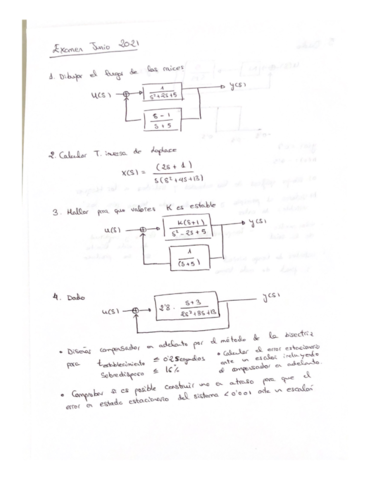 Examen Junio 2021
1. Dibujar el lugar de las raices
U(S)
1
S²+2S+5
Y(S)
S-1
S+5
2. Calcular T. inversa de Laplace
X(S) = (2S+1)
S(S²+4S+13)
3. Hallar para que valores K es estable
U(S)
K(S+1)
S²-2S+5
Y(S)
1
(S+5)
4. Dado
U(S)
28 · S+3
2S²+8S+13
Y(S)
• Diseñar compensador en adelanto por el método de la bisectriz
para testablecimiento ≤ 0'25 segundos
Sobredisparo ≤ 16%
• Calcular el error estacionario
ante un escalon incluyendo
el compensador en adelanto
• Comprobar si es posible construir una en atraso para que el
error en estado estacionario del sistema < 0'001 ante un escalon